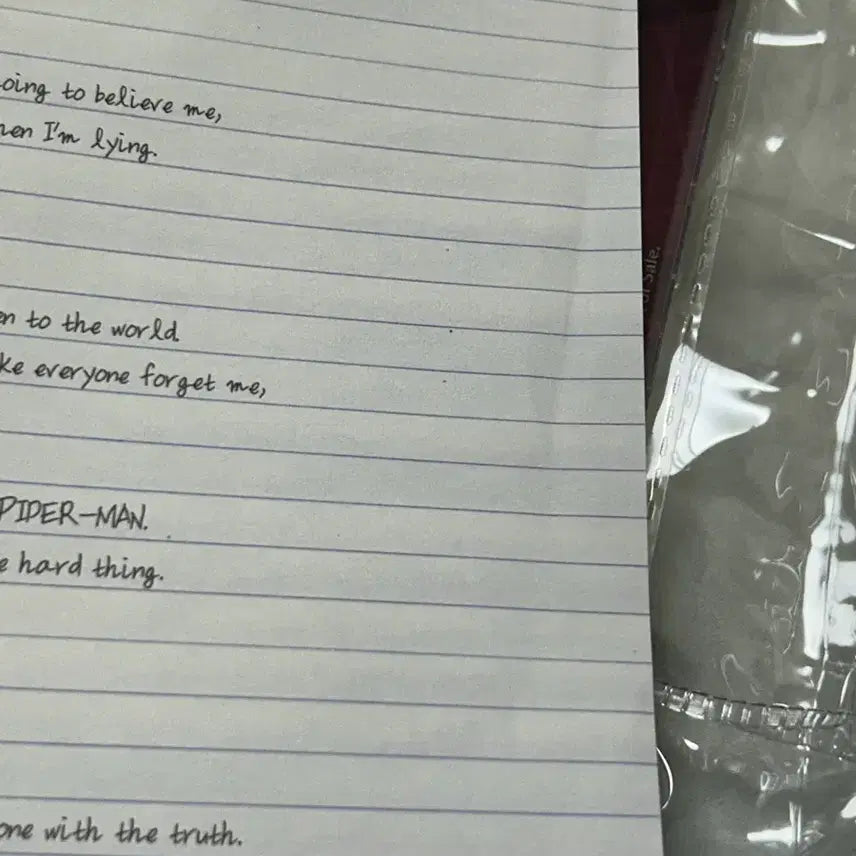 oing to believe me,
hen I'm lying.
en to the world
ke everyone forget me,
PIDER-MAN.
e hard thing.
one with the truth.
Sale.